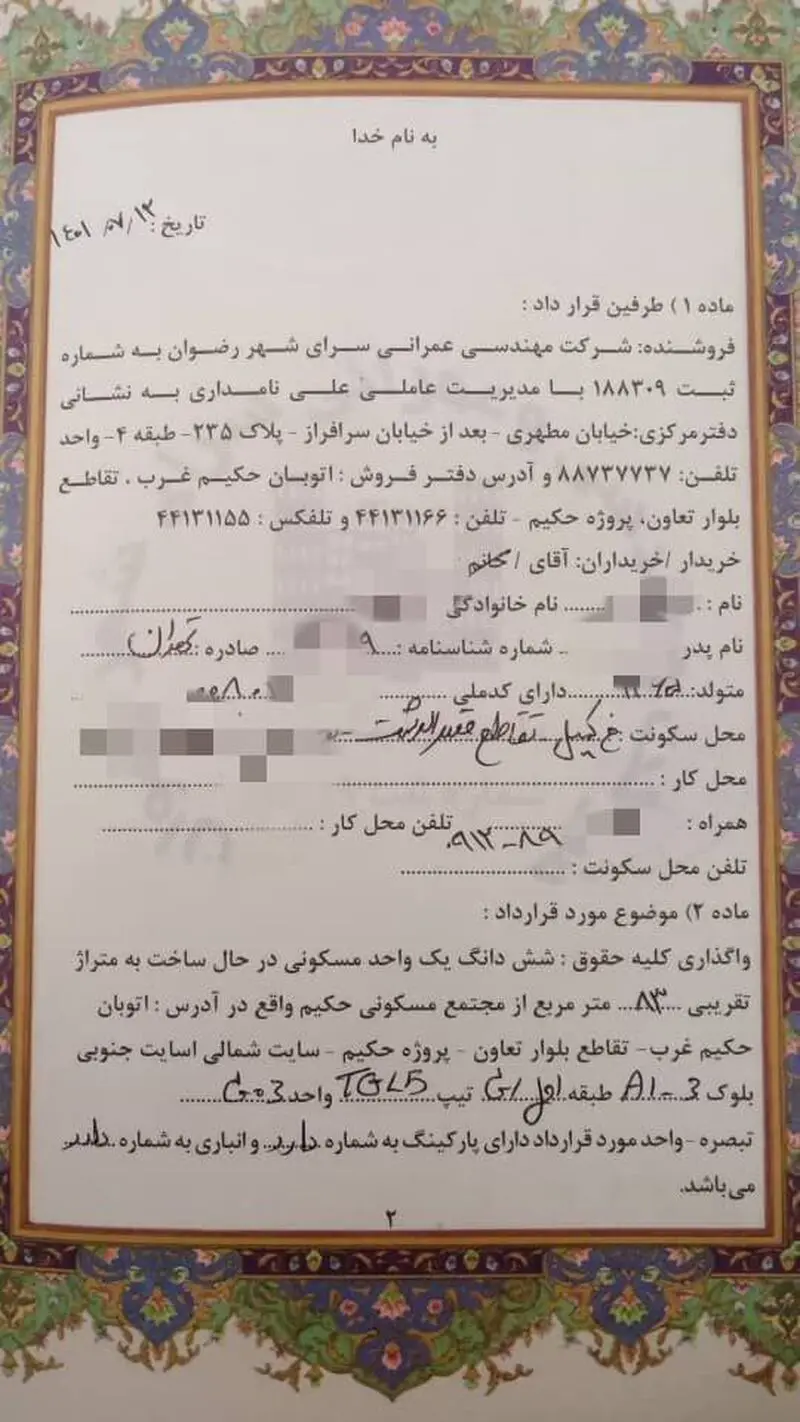 به نام خدا
تاریخ: ۱۴۰۱/۰۷/۱۳
ماده ۱) طرفین قرار داد :
فروشنده: شرکت مهندسی عمرانی سرای شهر رضوان به شماره
ثبت ۱۸۸۳۰۹ با مدیریت عاملی علی نامداری به نشانی
دفترمرکزی:خیابان مطهری - بعد از خیابان سرافراز - پلاک ۲۳۵- طبقه ۴- واحد
تلفن: ۸۸۷۳۷۷۳۷ و آدرس دفتر فروش : اتوبان حکیم غرب ، تقاطع
بلوار تعاون، پروژه حکیم - تلفن : ۴۴۱۳۱۱۶۶ و تلفکس : ۴۴۱۳۱۱۵۵
خریدار /خریداران: آقای / خانم
نام : نام خانوادگی
نام پدر شماره شناسنامه : ۹ صادره : تهران
متولد: دارای کدملی
محل سکونت : تقاطع
محل کار :
همراه : ۰۹۱۲-۸۹ تلفن محل کار :
تلفن محل سکونت :
ماده ۲) موضوع مورد قرارداد :
واگذاری کلیه حقوق : شش دانگ یک واحد مسکونی در حال ساخت به متراژ
تقریبی ۸۳ متر مربع از مجتمع مسکونی حکیم واقع در آدرس : اتوبان
حکیم غرب- تقاطع بلوار تعاون - پروژه حکیم - سایت شمالی /سایت جنوبی
بلوک A1-3 طبقه اول/G تیپ TGL5 واحد G03
تبصره -واحد مورد قرارداد دارای پارکینگ به شماره دارد و انباری به شماره دارد
می باشد.
۲